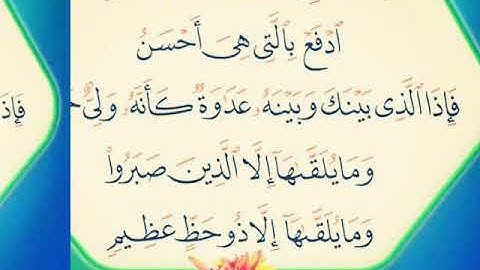 ٱدْفَعْ بِٱلَّتِى هِىَ أَحْسَنُ
فَإِذَا ٱلَّذِى بَيْنَكَ وَبَيْنَهُۥ عَدَٰوَةٌ كَأَنَّهُۥ وَلِىٌّ
وَمَا يُلَقَّىٰهَآ إِلَّا ٱلَّذِينَ صَبَرُوا۟
وَمَا يُلَقَّىٰهَآ إِلَّا ذُو حَظٍّ عَظِيمٍ